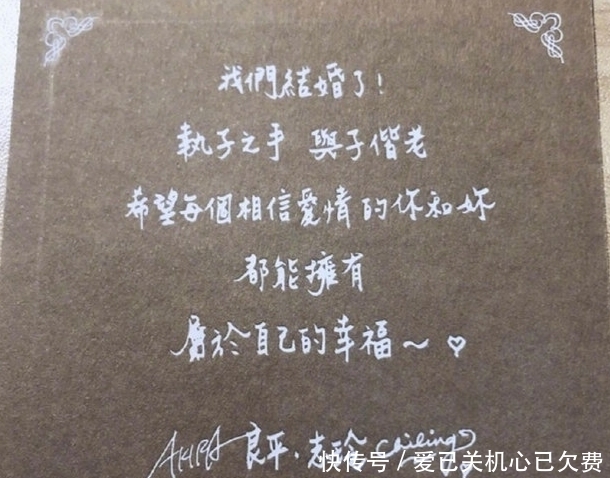 我們結婚了!
執子之手 與子偕老
希望每個相信愛情的你和妳
都能擁有
屬於自己的幸福~♡
AKIRA 良平、志玲 Chiling
快传号/爱已关机心已欠费